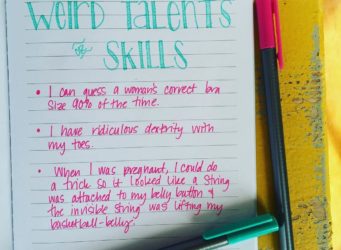 Weird Talents
& SKILLS
• I can guess a woman's correct bra
size 90% of the time.
• I have ridiculous dexterity with
my toes.
• When I was pregnant, I could do
a trick so it looked like a string
was attached to my belly button &
the invisible string was lifting my
basketball-belly.